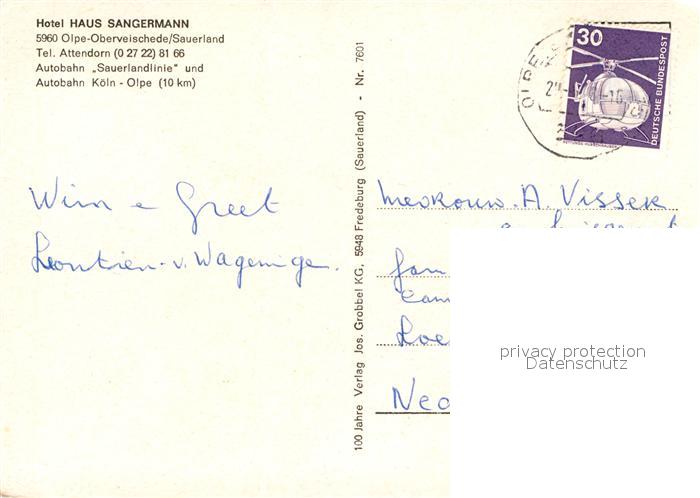 Hotel HAUS SANGERMANN
5960 Olpe-Oberveischede/Sauerland
Tel. Attendorn (0 27 22) 81 66
Autobahn „Sauerlandlinie" und
Autobahn Köln - Olpe (10 km)
Wim e Greet
Leontien - v. Wageninge.
100 Jahre Verlag Jos. Grobbel KG, 5948 Fredeburg (Sauerland) - Nr. 7601
OLPE
30
DEUTSCHE BUNDESPOST
Mevrouw. A. Visser
Fam
Loe
Ned
privacy protection
Datenschutz